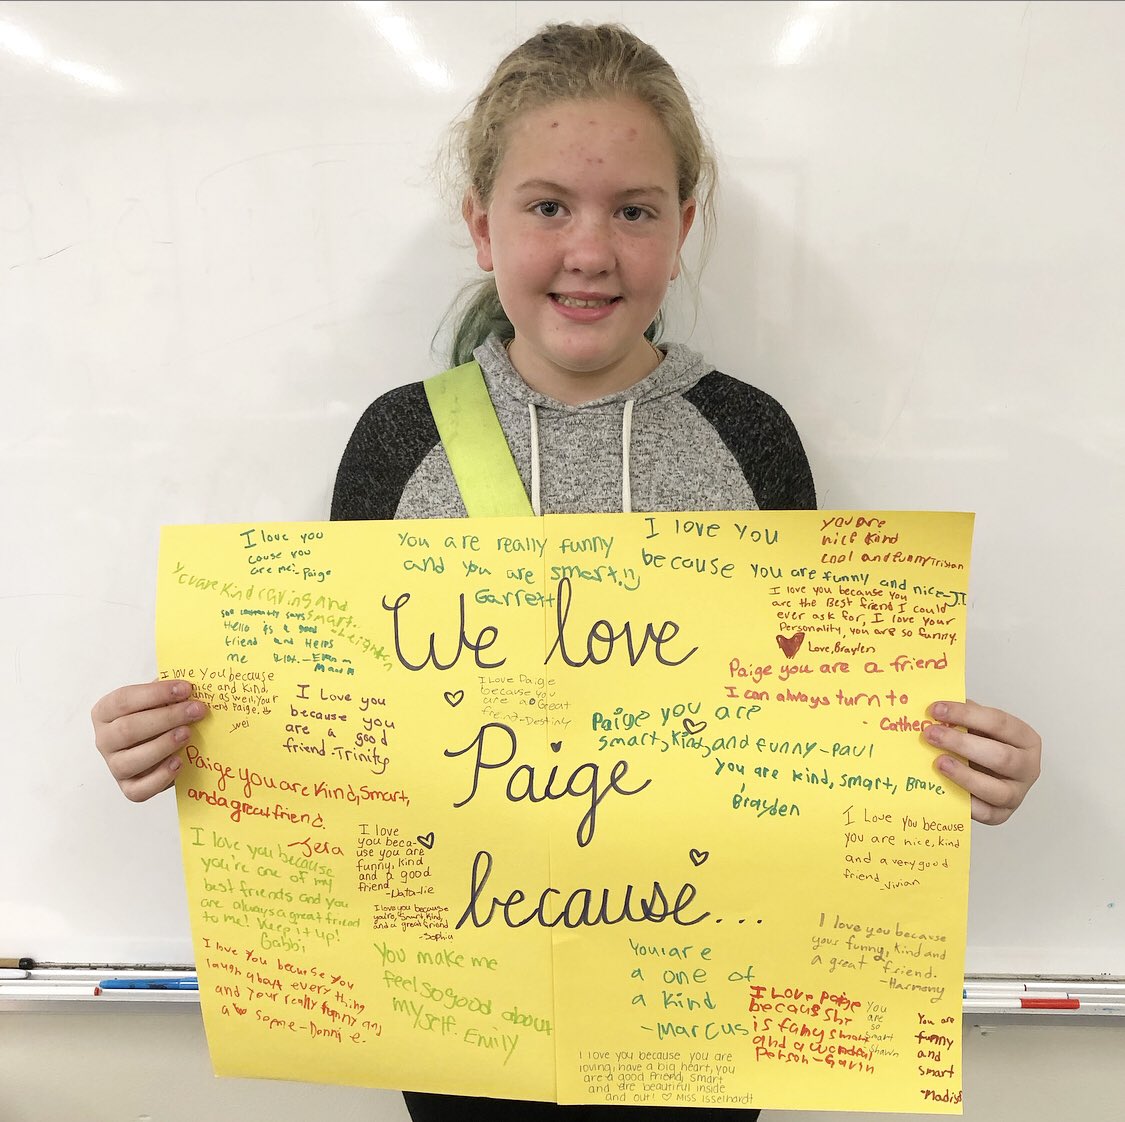 I love you
cause you
are me:-Paige
You are really funny
and you are smart.
Garrett
I love you
because you are funny and nice-J.T.
you are
nice kind
cool and funny Tristan
kind caring and
smart.
says
Hello is a good
friend and Helps
me
I love you because you
are the Best friend I could
ever ask for, I love your
Personality, you are so funny.
Love, Braylen
We love
Paige
because...
I love you because
nice and kind,
funny as well, your
friend Paige.
I Love you
because you
are a good
friend-Trinity
I Love Paige
because you
are a Great
freind-Destiny
Paige you are a friend
I can always turn to
- Cather
Paige you are
smart, kind, and funny-Paul
you are kind, smart, Brave.
Brayden
Paige you are kind, smart,
and a great friend.
I love
you beca-
use you are
funny, kind
and a good
friend
-Nata-lie
I love you because
you're one of my
best friends and you
are always a great friend
to me! Keep it up!
Gabbi
I love you because
you're, smart, kind,
and a great friend
-Sophia
I Love you because
you are nice, kind
and a very good
friend_Vivian
I love you because
your funny, kind and
a great friend.
-Harmony
I love you because you
laugh about every thing
and your really funny and
You make me
feel so good about
myself. Emily
You are
a one of
a kind
-Marcus
I Love Paige
because
is funy smart
and a
Person-Gavin
You
are
so
smart
Shawn
You are
funny
and
smart
-Madis
I love you because you are
loving, have a big heart, you
are a good friend, smart
and are beautiful inside
and out! ♡ Miss Isselhardt